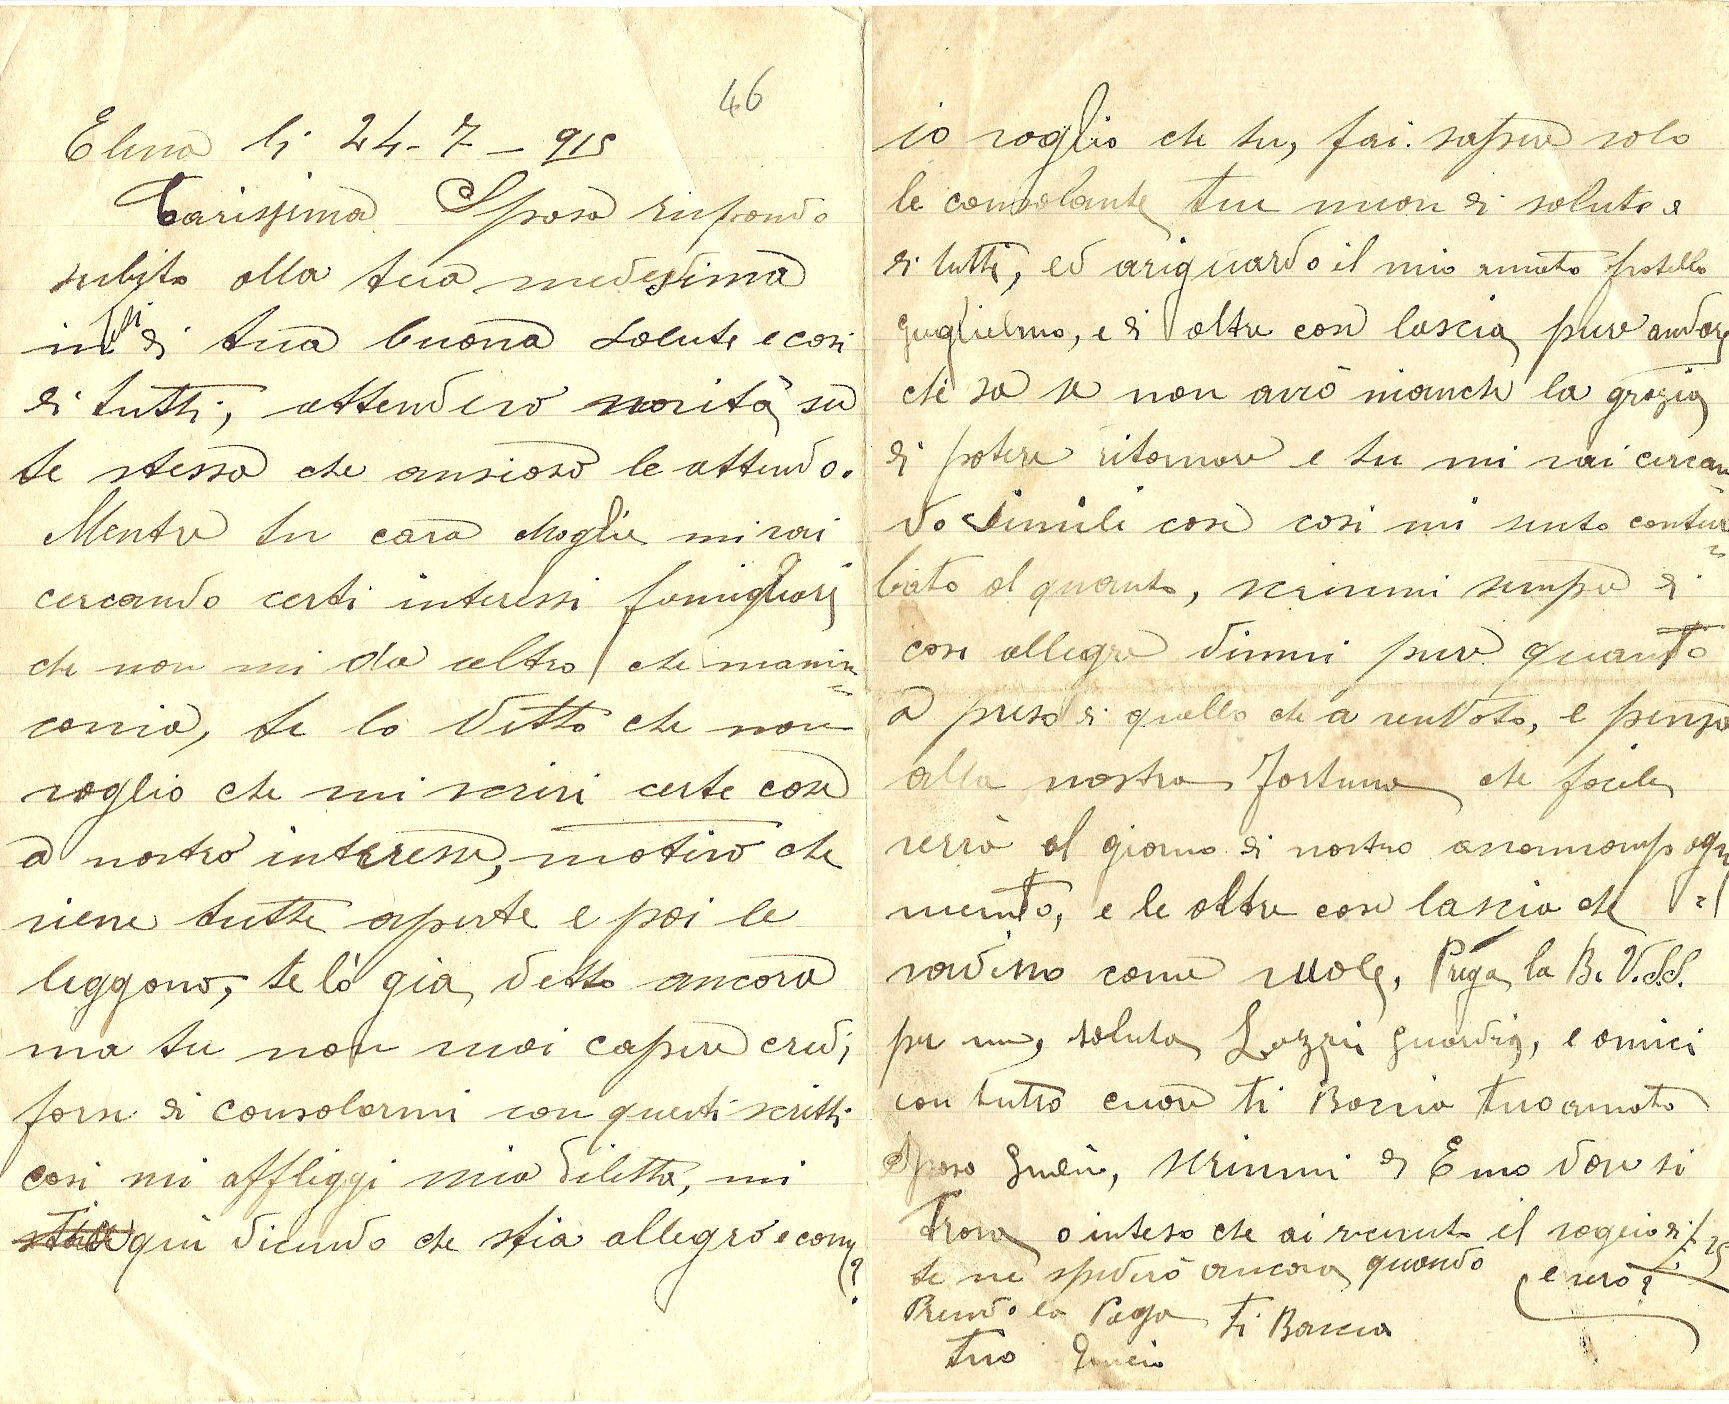 46
Elena li 24-7-915
Carissima Sposa rispondo
subito alla tua medesima
di tua buona salute e cosi
di tutti, attendero novità su
te stessa che ansioso le attendo.
Mentre tu cara Moglie mi vai
cercando certi interessi famigliari
che non mi da altro che manin=
conia, te lo ditto che non
voglio che mi scrivi certe cose
a nostro interesse, motivo che
viene tutte aperte e poi le
leggono, te lò gia detto ancora
ma tu non vuoi capire credi
forse di consolarmi con questi scritti
cosi mi affliggi mia diletta, mi
qui dicendo che stia allegro e come?
io voglio che tu, fai sapere solo
le consolante tue nuove di salute e
di tutti, ed ariguardo il mio amato fratello
Guglielmo, e di altre cose lascia pure andare
chi sa se non avrò nianche la grazia
di potere ritornare e tu mi vai cercan
do simili cose cosi mi sento contur=
bato al quanto, scrivimi sempre di
cose allegre dimmi pure quanto
a preso di quello che a venduto, e penza
alla nostra Fortuna che facile
verrà al giorno di nostro
mento, e le altre cose lascia che
vadino come vuole, Prega la B. V. S.S.
per me, saluta Lazzeri Guardia, e amici
con tutto cuore ti Baccio tuo amato
Sposo scrivimi di Emo dove si
Trova o inteso che ai ricevuto il vaglia di £ 25
te ne spederò ancora quando
Prendo la Paga ti Baccia
Tuo